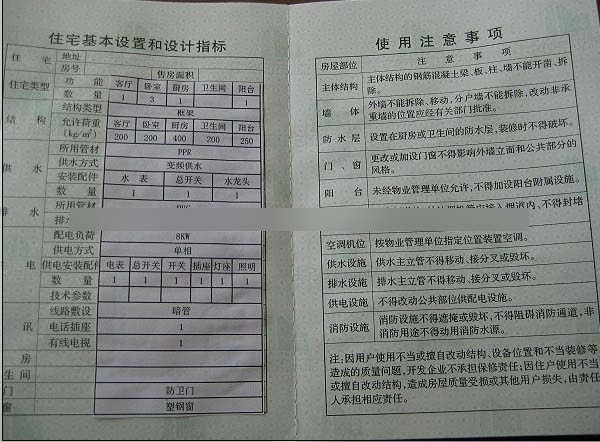 住宅基本设置和设计指标
住 宅 地址
房号 售房面积
住宅类型 功 能 客厅 卧室 厨房 卫生间 阳台
数 量 1 3 1 1
结 构 结构类型 框架
允许荷重 客厅 卧室 厨房 卫生间 阳台
(kg/m²) 200 200 400 200 250
供 水 所用管材 PPR
供水方式 变频供水
安装配件 水 表 总开关 水龙头
数 量 1 1 1
排 水 所用管材
配电负荷 8KW
供电方式 单相
电 供电安装配件 电表 总开关 开关 插座 灯座 照明
数 量 1 1 1 1 1 1
技术参数
讯 线路敷设 暗管
电话插座 1
有线电视 1
房
生 间
门 防卫门
窗 塑钢窗
使用注意事项
房屋部位 注 意 事 项
主体结构 主体结构的钢筋混凝土梁、板、柱、墙不能开凿、拆
除。
墙 体 外墙不能拆除、移动,分户墙不能拆除,改动非承
重墙的位置应经有关部门批准。
防 水 层 设置在厨房或卫生间的防水层,装修时不得破坏。
门 、 窗 更改或加设门窗不得影响外墙立面和公共部分的
风格。
阳 台 未经物业管理单位允许,不得加设阳台附属设施。
不得封堵
空调机位 按物业管理单位指定位置装置空调。
供水设施 供水主立管不得移动、接分叉或毁坏。
排水设施 排水主立管不得移动、接分叉或毁坏。
供电设施 不得改动公共部位供配电设施。
消防设施 消防设施不得遮掩或毁坏,不得阻碍消防通道,非
消防用途不得动用消防水源。
注:因用户使用不当或擅自改动结构、设备位置和不当装修等
造成的质量问题,开发企业不承担保修责任;因住户使用不当
或擅自改动结构,造成房屋质量受损或其他用户损失,由责任
人承担相应责任。